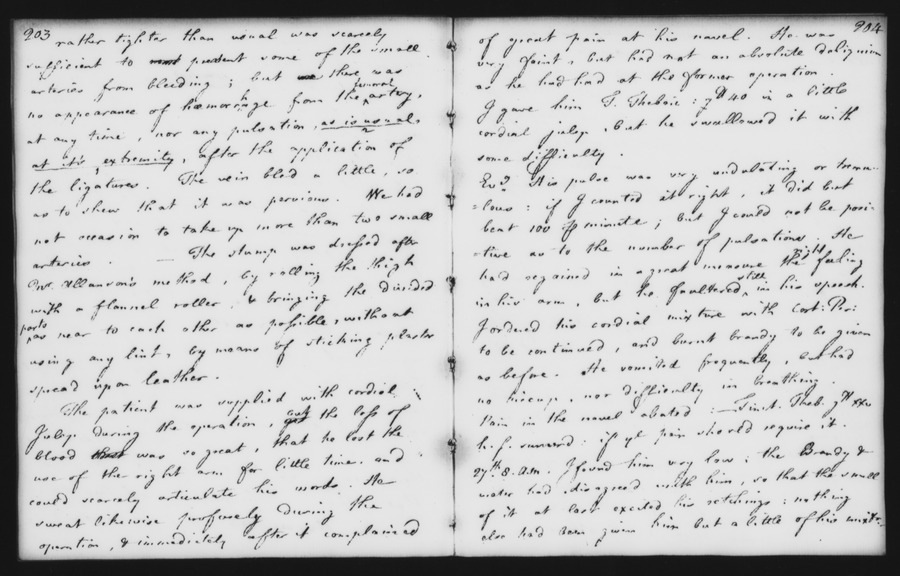 203
rather tighter than usual was scarcely
sufficient to prevent some of the small
arteries from bleeding ; but there was
no appearance of hæmorrhage from the femoral artery,
at any time nor any pulsation, as is usual,
at its extremity, after the application of
the ligatures. The vein bled a little, so
as to shew that it was pervious. We had
not occasion to take up more than two small
arteries. — The stump was dressed after
Mr. Allanson's method, by rolling the thigh
with a flannel roller, & bringing the divided
parts as near to each other as possible, without
using any lint, by means of sticking plaster
spread upon leather.
The patient was supplied with cordial
Julep during the operation, but the loss of
blood was so great, that he lost the
use of the right arm for little time, and
could scarcely articulate his words. He
sweat likewise profusely during the
operation, & immediately after it complained
204
of great pain at his navel. He was
very faint, but had not an absolute deliquium
as he had had at the former operation.
I gave him T. Thebaic : gtt 40 in a little
cordial julep, but he swallowed it with
some difficulty.
His pulse was very undulating or tremu-
=lous : if I counted it right, it did but
beat 100 minute ; but I could not be posi-
=tive as to the number of pulsations. He
had regained in a great measure the right feeling
in his arm, but he faultered still in his speech.
I ordered his cordial mixture with Cort: Per:
to be continued, and burnt brandy to be given
as before. He vomited frequently, but had
no hiccup, nor difficulty in breathing.
Pain in the navel abated : — Tinct. Theb. gtt xxv
h. s. sumend : if ye pain should require it.
27th. 8. a.m. I found him very low ; the Brandy &
water had disagreed with him, so that the smell
of it at last excited his retchings : nothing
else had been given him but a little of his mixt-